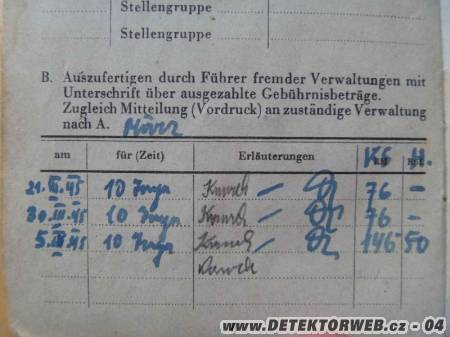 Stellengruppe
Stellengruppe
B. Auszufertigen durch Führer fremder Verwaltungen mit
Unterschrift über ausgezahlte Gebührnisbeträge.
Zugleich Mitteilung (Vordruck) an zuständige Verwaltung
nach A. März
am für (Zeit) Erläuterungen
21.III.45 10 76 –
30.III.45 10 76 –
5. 45 10 146 50
www.DETEKTORWEB.cz - 04